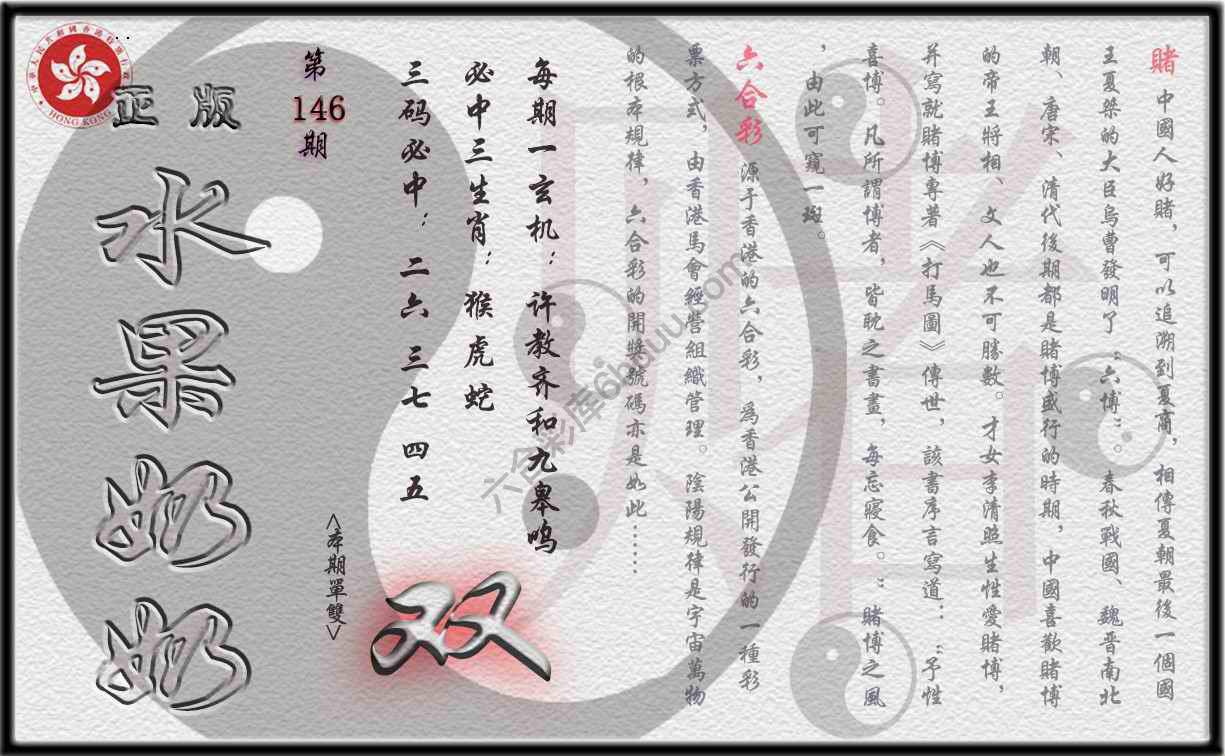 賭 中國人好賭，可以追溯到夏商，相傳夏朝最後一個國
王夏桀的大臣烏曹發明了“六博”。春秋戰國、魏晋南北
朝、唐宋、清代後期都是賭博盛行的時期，中國喜歡賭博
的帝王將相、文人也不可勝數。才女李清照生性愛賭博，
并寫就賭博專著《打馬圖》傳世，該書序言寫道：“予性
喜博。凡所謂博者，皆耽之書畫，每忘寢食。”賭博之風
，由此可窺一斑。
六合彩 源于香港的六合彩，為香港公開發行的一種彩
票方式，由香港馬會經營組織管理。陰陽規律是宇宙萬物
的根本規律，六合彩的開獎號碼亦是如此……
每期一玄机：许教齐和九皋鸣
必中三生肖：猴虎蛇
三码必中：二六 三七 四五
第
146
期
<本期單雙>
双
正版
水果奶奶
HONG KONG
六合彩库6hduu.com